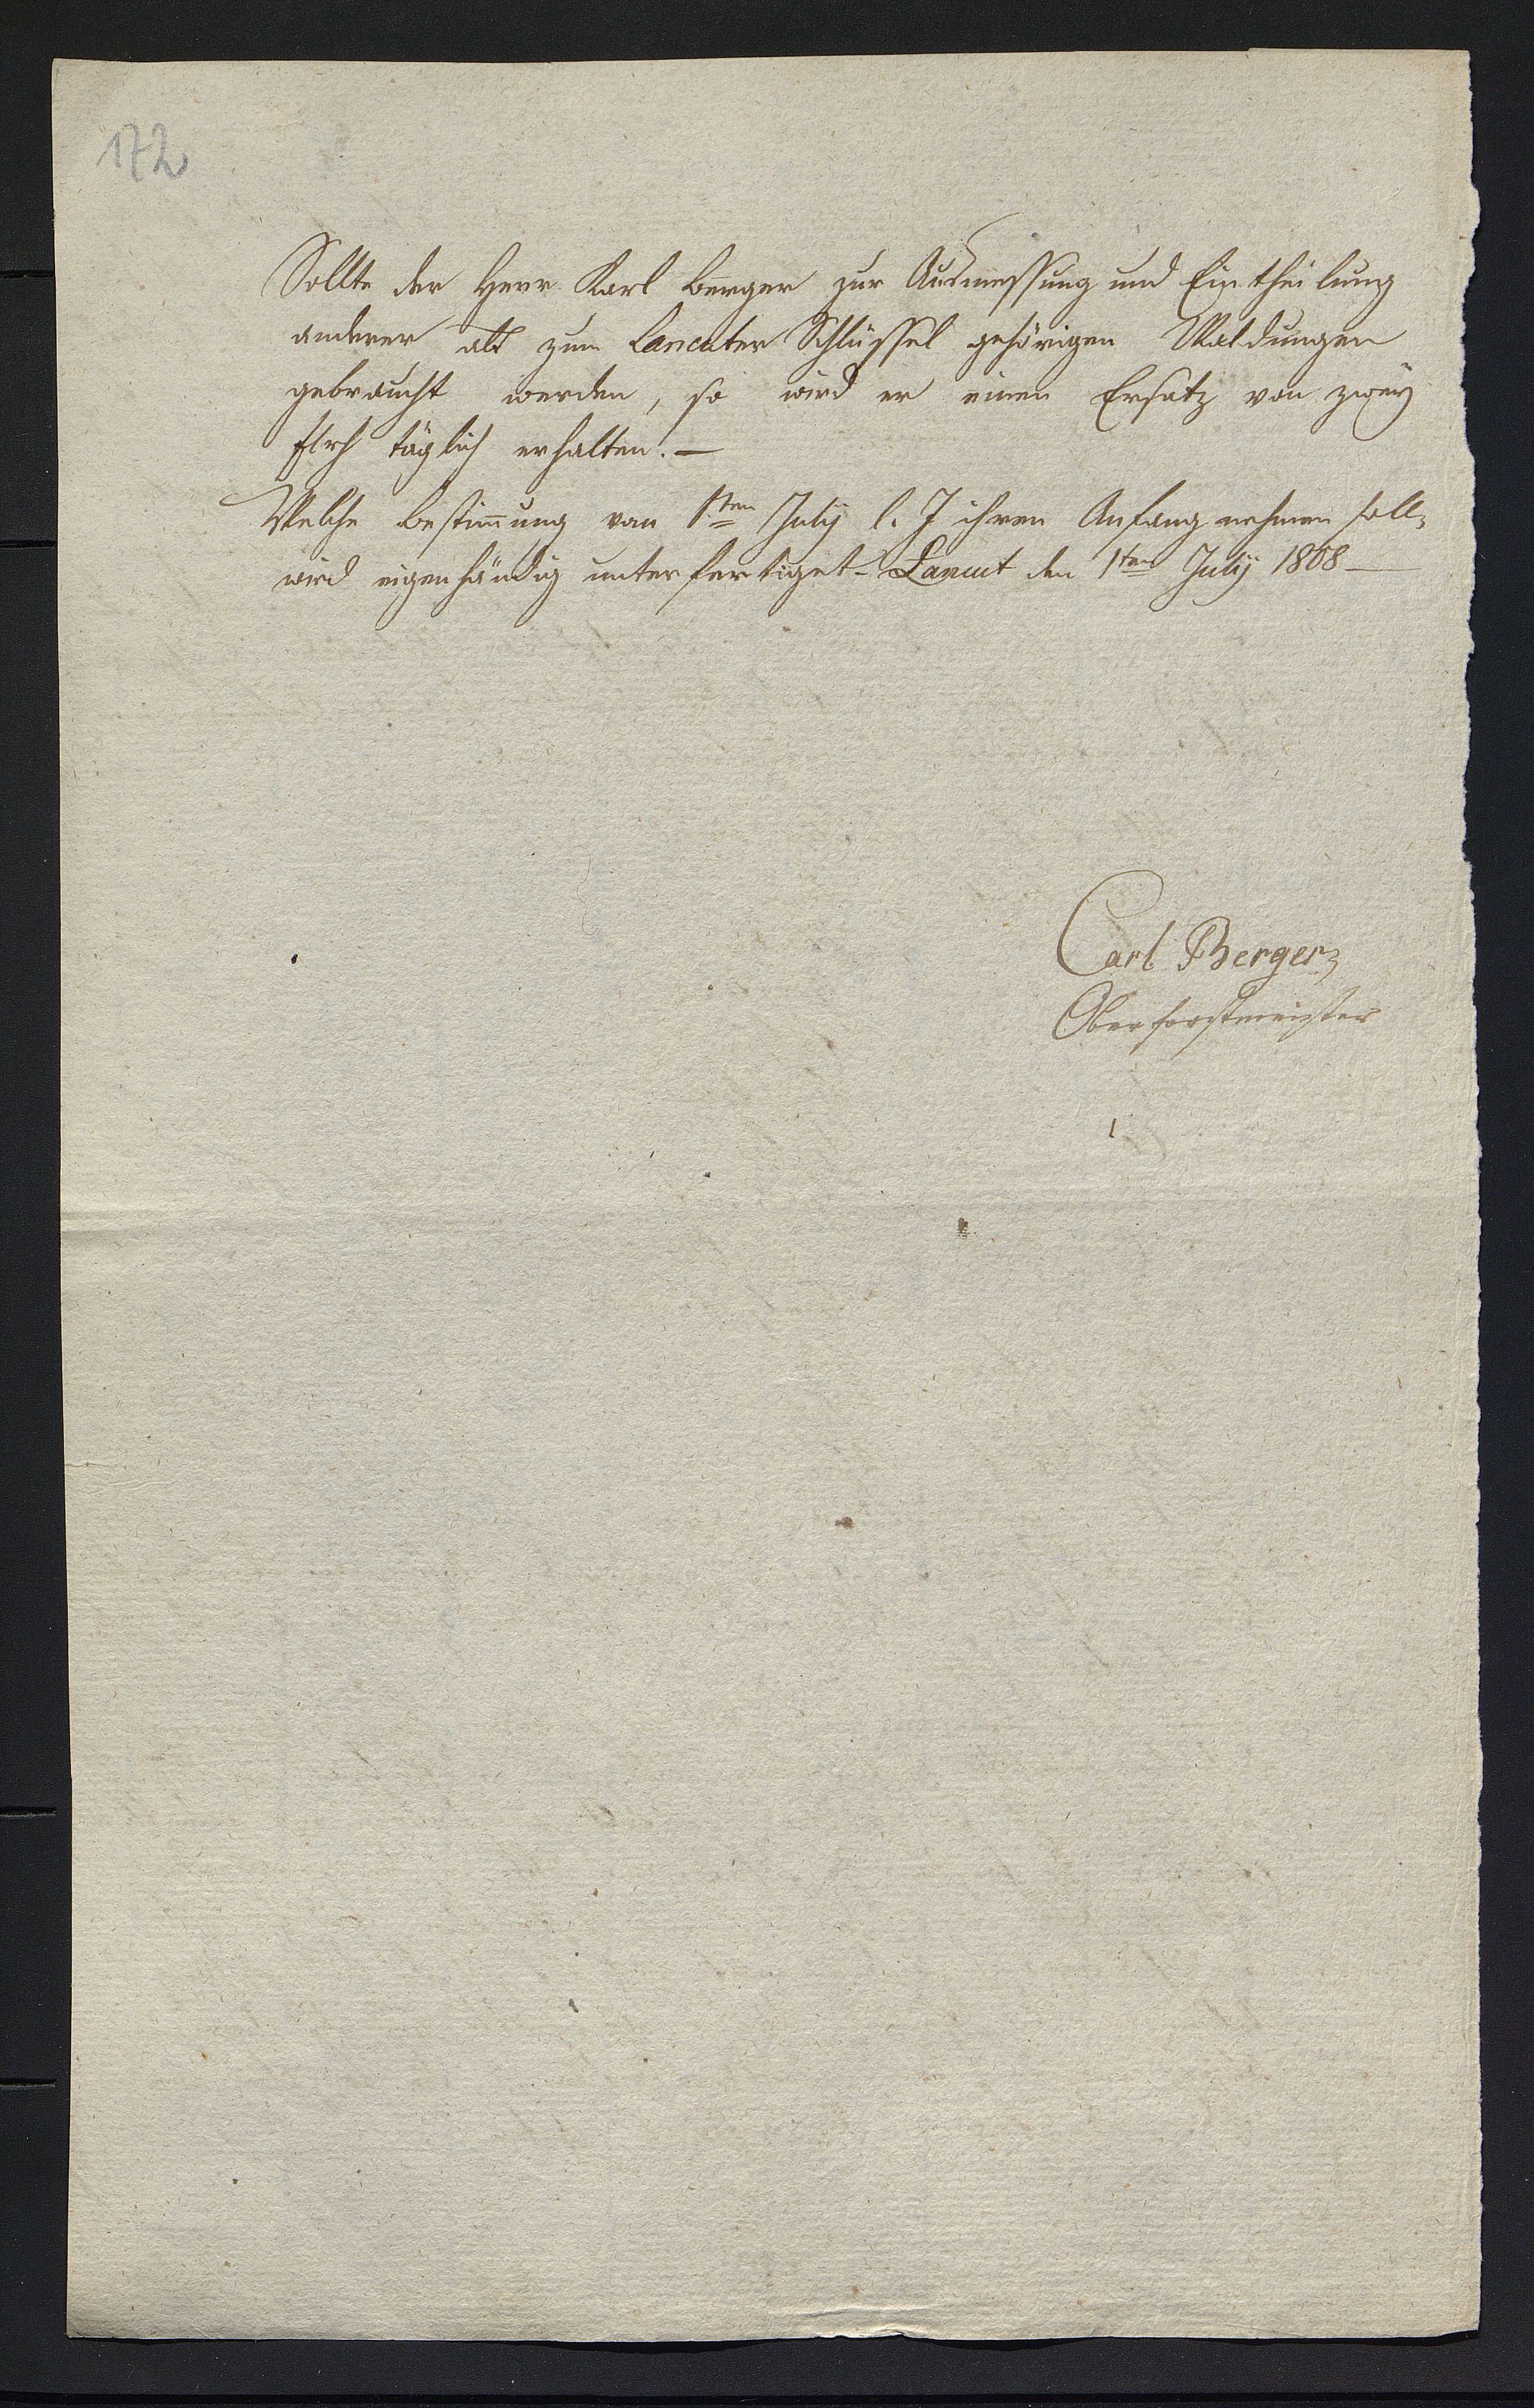 172
Sollte der Herr Karl Berger zur Ausmessung und Eintheilung
anderer als zum Lancuter Schlüssel gehörigen Waldungen
gebraucht werden, so wird er einen Ersatz von zweÿ
täglich erhalten. —
Welche Bestim̅ung vom 1ten Julÿ l. J ihren Anfang nehmen soll,
wird eigenhändig unterfertiget - Lancut den 1ten Julÿ 1808 —
Carl Berger
Oberforstmeister